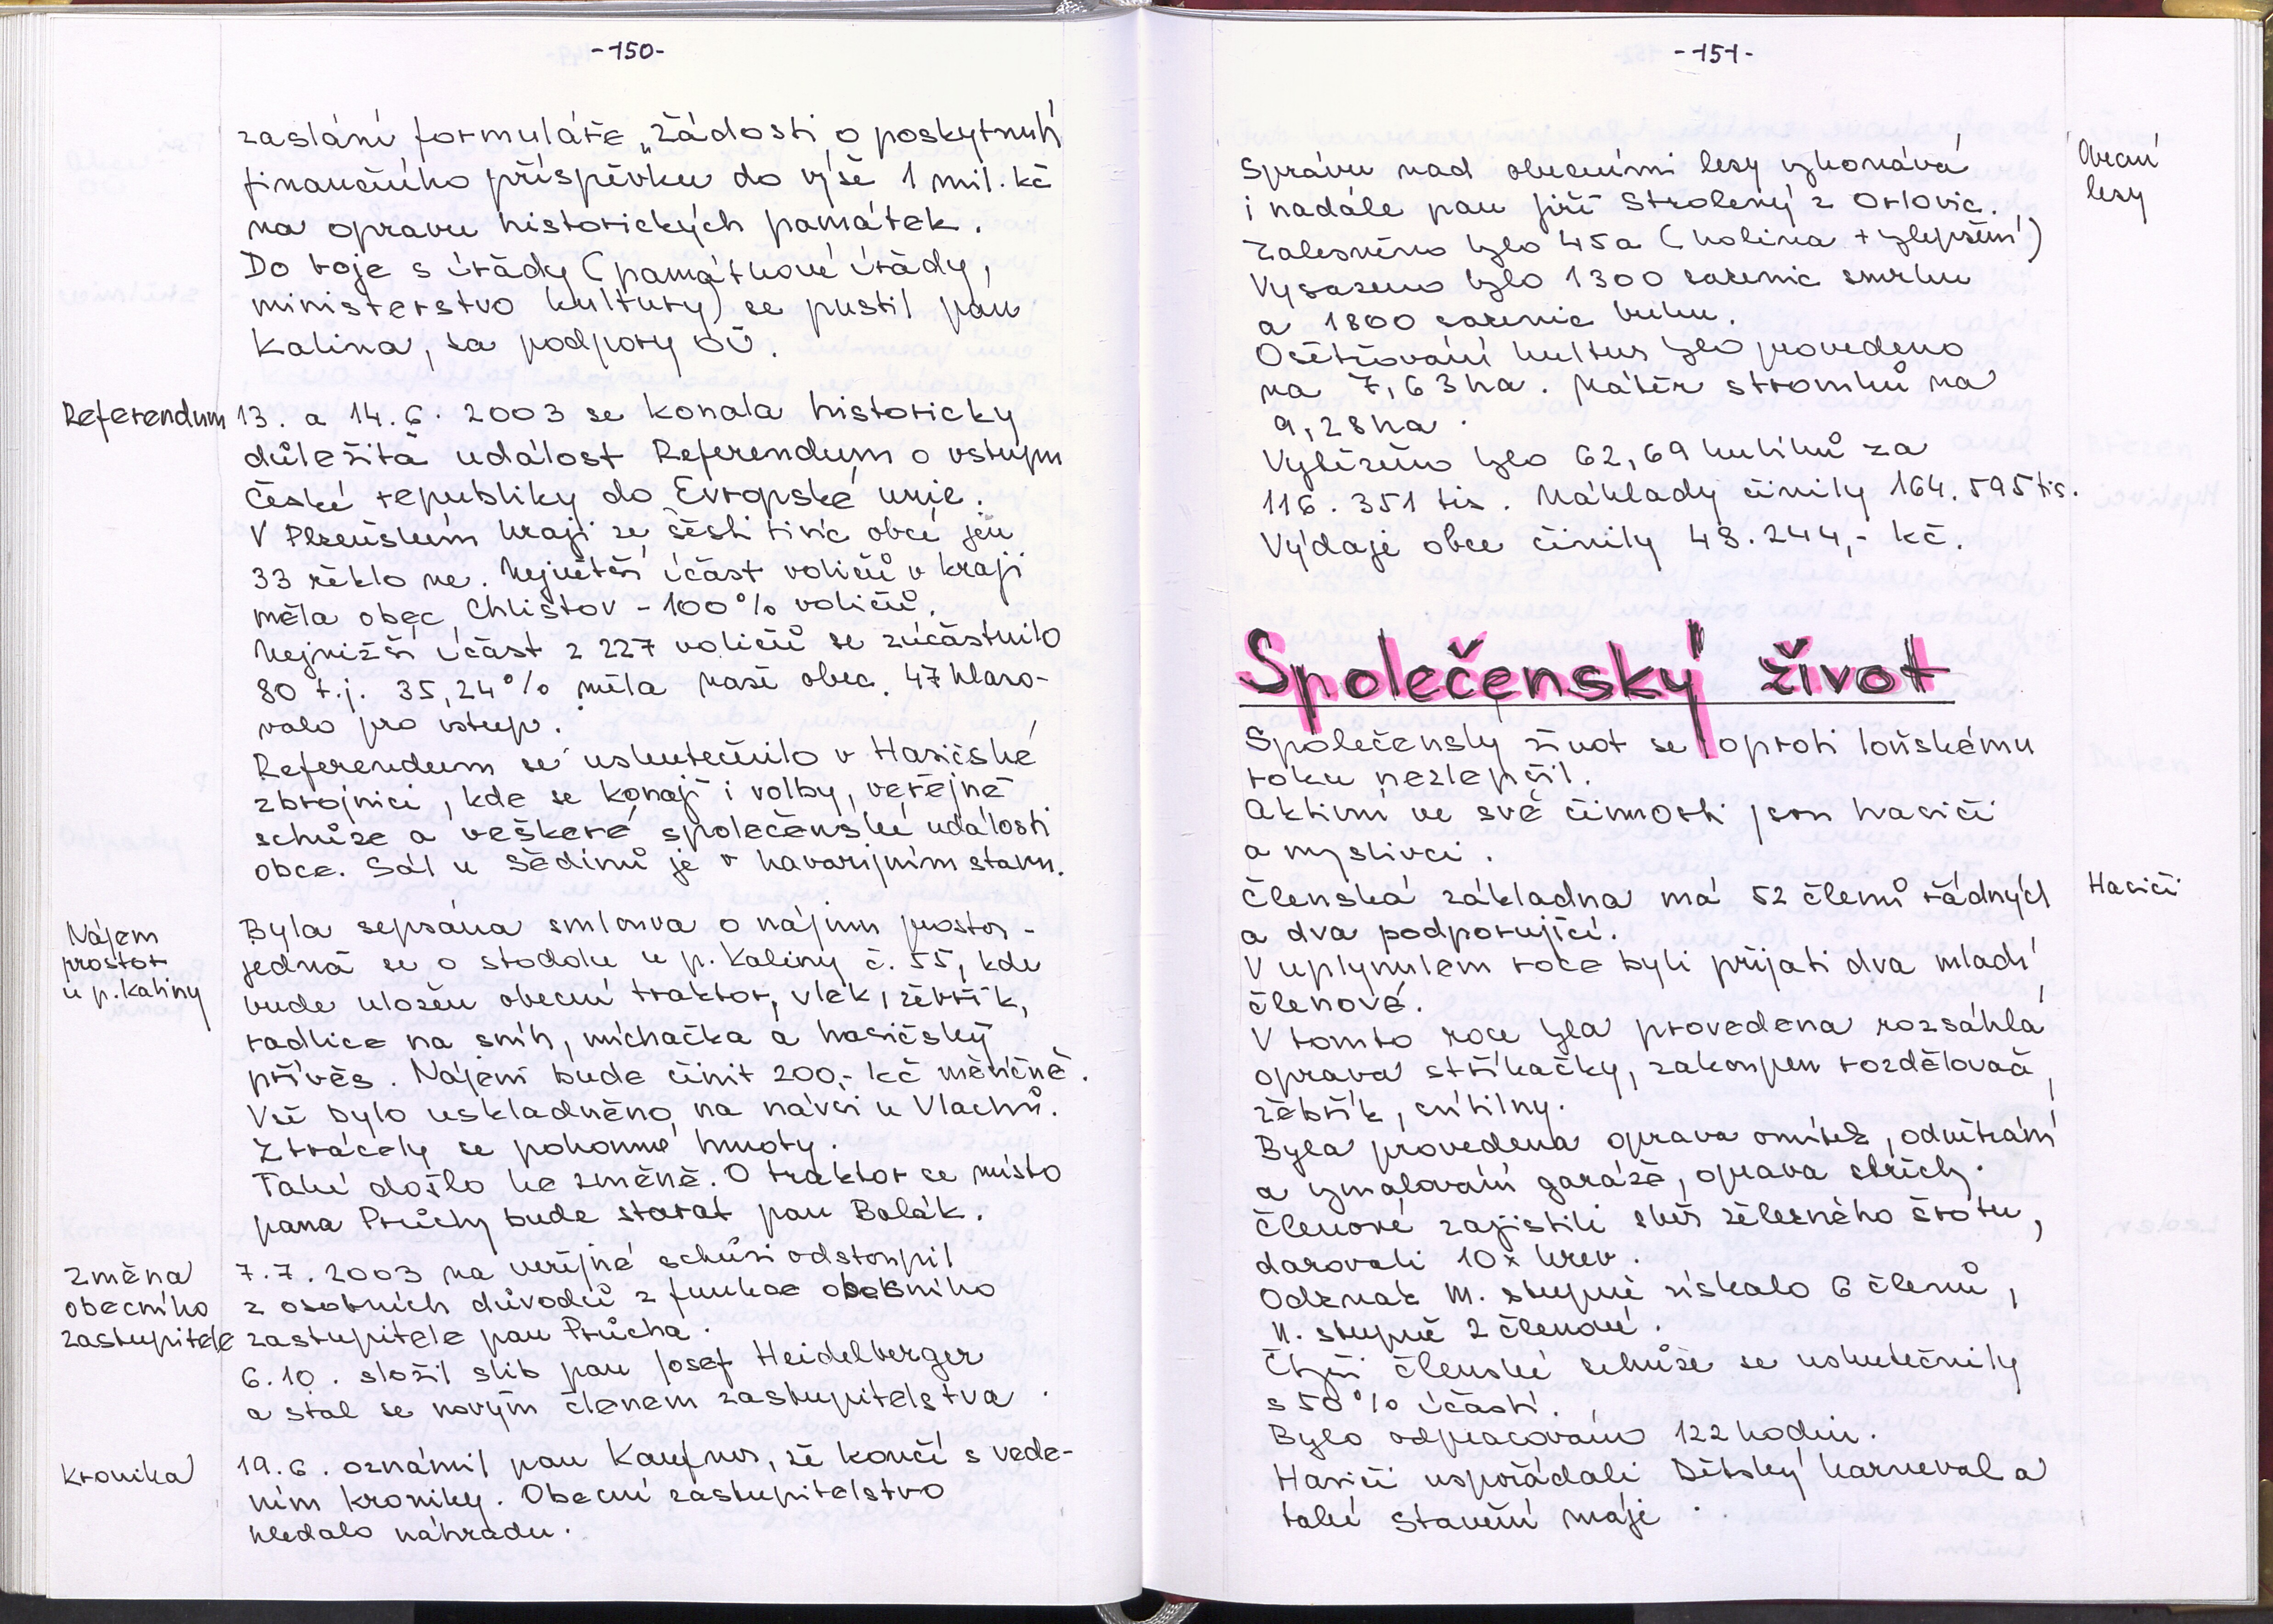 -150-
zaslání formuláře „Žádosti o poskytnutí
finančního příspěvku do výše 1 mil. kč
na opravu historických památek.
Do boje s úřády (památkové úřády,
ministerstvo kultury) se pustil pan
Kalina, za podpory OÚ.
Referendum
13. a 14. 6. 2003 se konala historicky
důležitá událost Referendum o vstupu
české republiky do Evropské unie.
V Plzeňském kraji ze šesti tisíc obcí jen
33 řeklo ne. Největší účast voličů v kraji
měla obec Chlistov - 100% voličů.
Nejnižší účast z 227 voličů se zúčastnilo
80 t.j. 35,24% měla naše obec. 47 hlaso-
valo pro vstup.
Referendum se uskutečnilo v Hasičské
zbrojnici, kde se konají i volby, veřejné
schůze a veškeré společenské události
obce. Sál u Šedinů je v havarijním stavu.
Nájem
prostor
u p. Kaliny
Byla sepsána smlouva o nájmu prostor -
jedná se o stodolu u p. Kaliny č. 55, kde
bude uložen obecní traktor, vlek, žebřík,
radlice na sníh, míchačka a hasičský
přívěs. Nájem bude činit 200,- kč měsíčně.
Vše bylo uskladněno na návsi u Vlachů.
Ztrácely se pohonné hmoty.
Také došlo ke změně. O traktor se místo
pana Průchy bude starat pan Balák.
Změna
obecního
zastupitele
7.7.2003 na veřejné schůzi odstoupil
z osobních důvodů z funkce obecního
zastupitele pan Průcha.
6.10. složil slib pan Josef Heidelberger
a stal se novým členem zastupitelstva.
Kronika
19.6. oznámil pan Kaufnus, že končí s vede-
ním kroniky. Obecní zastupitelstvo
hledalo náhradu.
-151-
Obecní
lesy
Správu nad obecními lesy vykonává
i nadále pan Jiří Strolený z Orlovic.
Zalesněno bylo 45a (holina + vylepšení)
Vysazeno bylo 1300 sazenic smrku
a 1800 sazenic buku.
Ošetřování kultur bylo provedeno
na 7,63 ha. Nátěr stromků na
9,28 ha.
Vytěženo bylo 62,69 kubíků za
116.351 tis. Náklady činily 164.595 tis.
Výdaje obce činily 48.244,- kč.
Společenský život
Společensky život se oproti loňskému
roku nezlepšil.
Aktivní ve své činnosti jsou hasiči
a myslivci.
Hasiči
Členská základna má 52 členů řádných
a dva podporující.
V uplynulem roce byli přijati dva mladí
členové.
V tomto roce byla provedena rozsáhlá
oprava stříkačky, zakoupen rozdělovač,
žebřík, svítilny.
Byla provedena oprava omítek, odvětrání
a vymalování garáže, oprava střechy.
Členové zajistili sběr železného šrotu,
darovali 10x krev.
Odznak III. stupně získalo 6 členů,
II. stupně 2 členové.
Čtyři členské schůze se uskutečnily
s 50% účastí.
Bylo odpracováno 122 hodin.
Hasiči uspořádali Dětský karneval a
také Stavění máje.